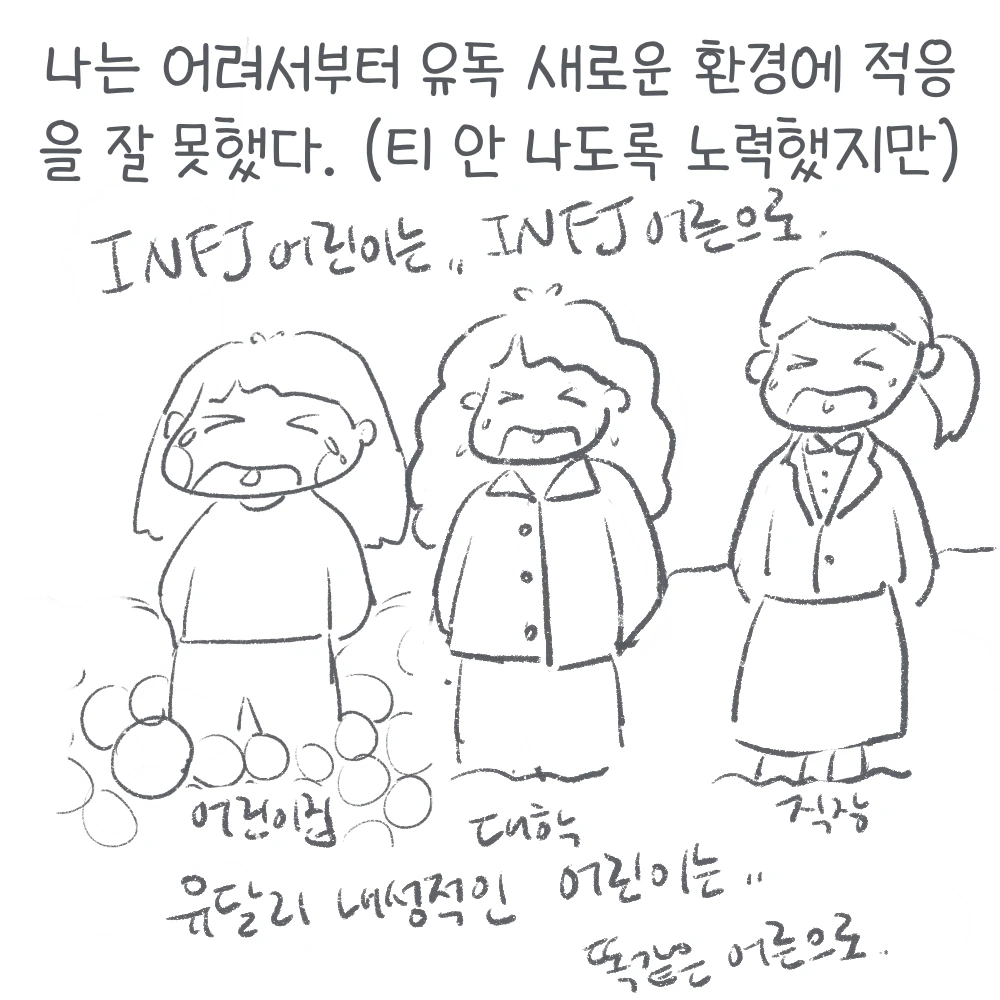 나는 어려서부터 유독 새로운 환경에 적응
을 잘 못했다. (티 안 나도록 노력했지만)
INFJ 어린이는.. INFJ 어른으로.
어린이집 대학 직장
유달리 내성적인 어린이는..
똑같은 어른으로.